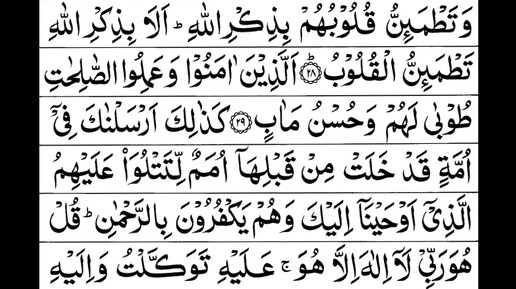 وَتَطْمَئِنُّ قُلُوْبُهُمْ بِذِكْرِ اللّٰهِ ؕ اَلَا بِذِكْرِ اللّٰهِ
تَطْمَئِنُّ الْقُلُوْبُ ؕ ۝۲۸ اَلَّذِيْنَ اٰمَنُوْا وَعَمِلُوا الصّٰلِحٰتِ
طُوْبٰى لَهُمْ وَحُسْنُ مَاٰبٍ ۝۲۹ كَذٰلِكَ اَرْسَلْنٰكَ فِيْۤ
اُمَّةٍ قَدْ خَلَتْ مِنْ قَبْلِهَاۤ اُمَمٌ لِّتَتْلُوَا۟ عَلَيْهِمُ
الَّذِيْۤ اَوْحَيْنَاۤ اِلَيْكَ وَهُمْ يَكْفُرُوْنَ بِالرَّحْمٰنِ ؕ قُلْ
هُوَ رَبِّيْ لَاۤ اِلٰهَ اِلَّا هُوَ ۚ عَلَيْهِ تَوَكَّلْتُ وَاِلَيْهِ